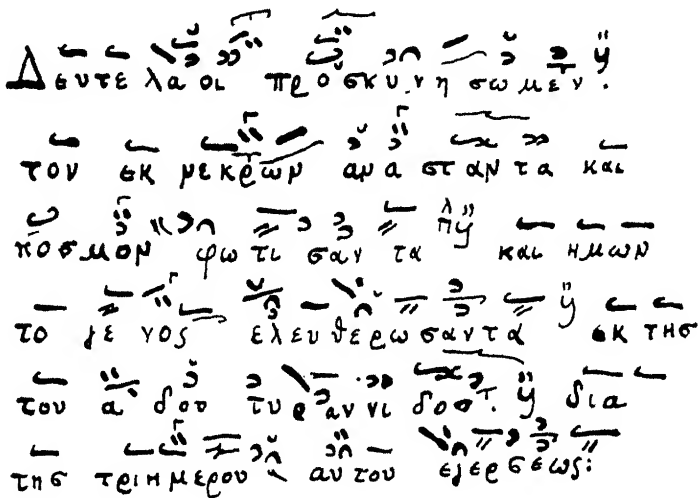 Δευτε λαοι προσκυνη σωμεν.
τον εκ νεκρων ανα σταντα και
κοσμον φωτι σαν τα και ημων
το γενος ελευθερωσαντα εκ της
του αδου τυραννι δος. δια
της τριημερου αυτου εγερσεως: